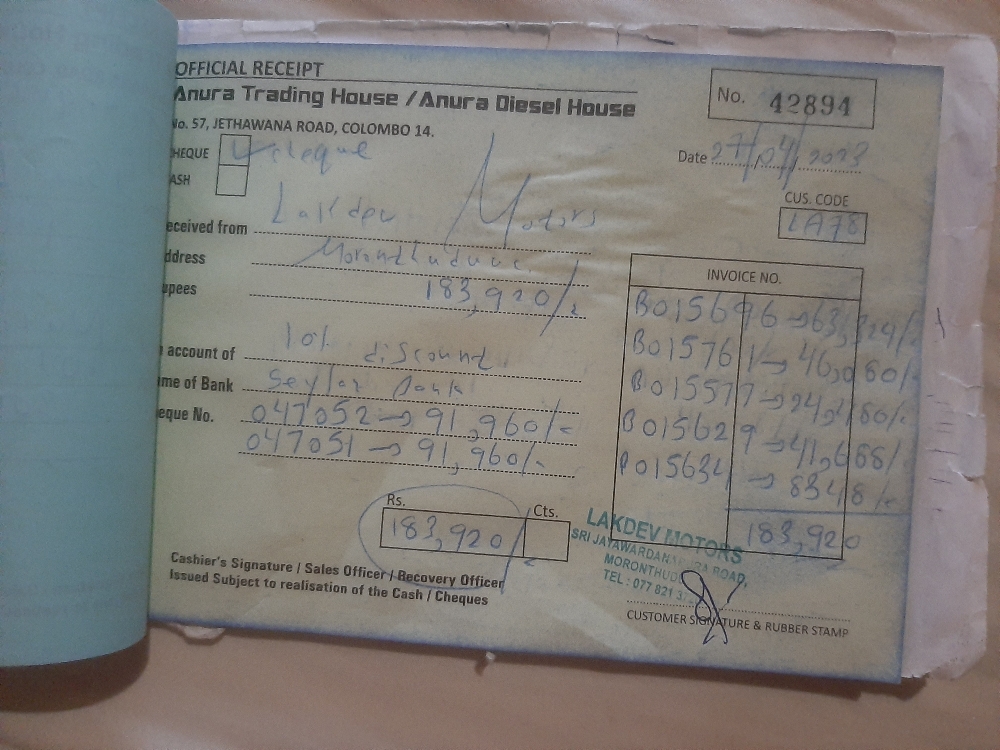 OFFICIAL RECEIPT
Anura Trading House / Anura Diesel House
No. 57, JETHAWANA ROAD, COLOMBO 14.
No. 42894
Date 27/04/2023
HEQUE cheque
ASH
CUS. CODE
LA78
eceived from Lakdev Motors
ddress
upees 183,920/-
account of 10% discount
me of Bank Seylan Bank
eque No. 047052 → 91,960/-
047051 → 91,960/-
INVOICE NO.
B015696 → 63,324/-
B015761 → 46,060/-
B015577 → 24,480/-
B015629 → 41,688/-
B015634 → 8348/-
183,920
Rs. Cts.
183,920/-
LAKDEV MOTORS
SRI JAYAWARDANAPURA ROAD,
TEL : 077 821
Cashier's Signature / Sales Officer / Recovery Officer
Issued Subject to realisation of the Cash / Cheques
CUSTOMER SIGNATURE & RUBBER STAMP